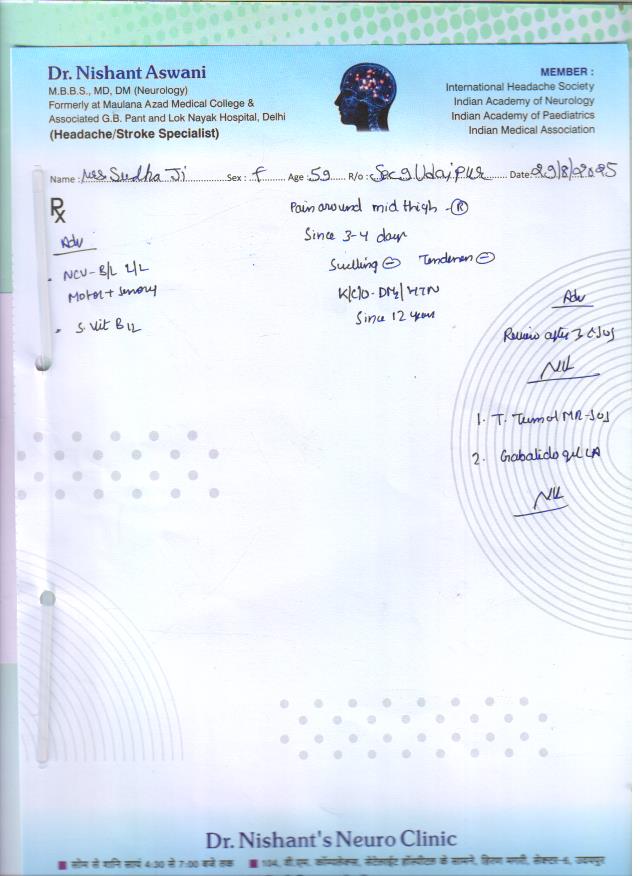 Dr. Nishant Aswani
M.B.B.S., MD, DM (Neurology)
Formerly at Maulana Azad Medical College &
Associated G.B. Pant and Lok Nayak Hospital, Delhi
(Headache/Stroke Specialist)
MEMBER :
International Headache Society
Indian Academy of Neurology
Indian Academy of Paediatrics
Indian Medical Association
Name : Mrs Sudha Ji Sex : F Age : 59 R/o : Sec 9 Udaipur Date: 29/8/2025
Rx
Adv
. NCV - B/L L/L
Motor + Sensory
. S. Vit B12
Pain around mid thigh - (R)
Since 3-4 days
Swelling ⊖ Tenderness ⊖
K/C/O - DM2/HTN
Since 12 years
Adv
Review after 3 d SOS
1. T. MR - SOS
2. gel LA
Dr. Nishant's Neuro Clinic
सोम से शनि सायं 4:30 से 7:00 बजे तक 104, वी.एम. कॉम्पलेक्स, सेटेलाईट हॉस्पीटल के सामने, हिरण मगरी, सेक्टर-6, उदयपुर